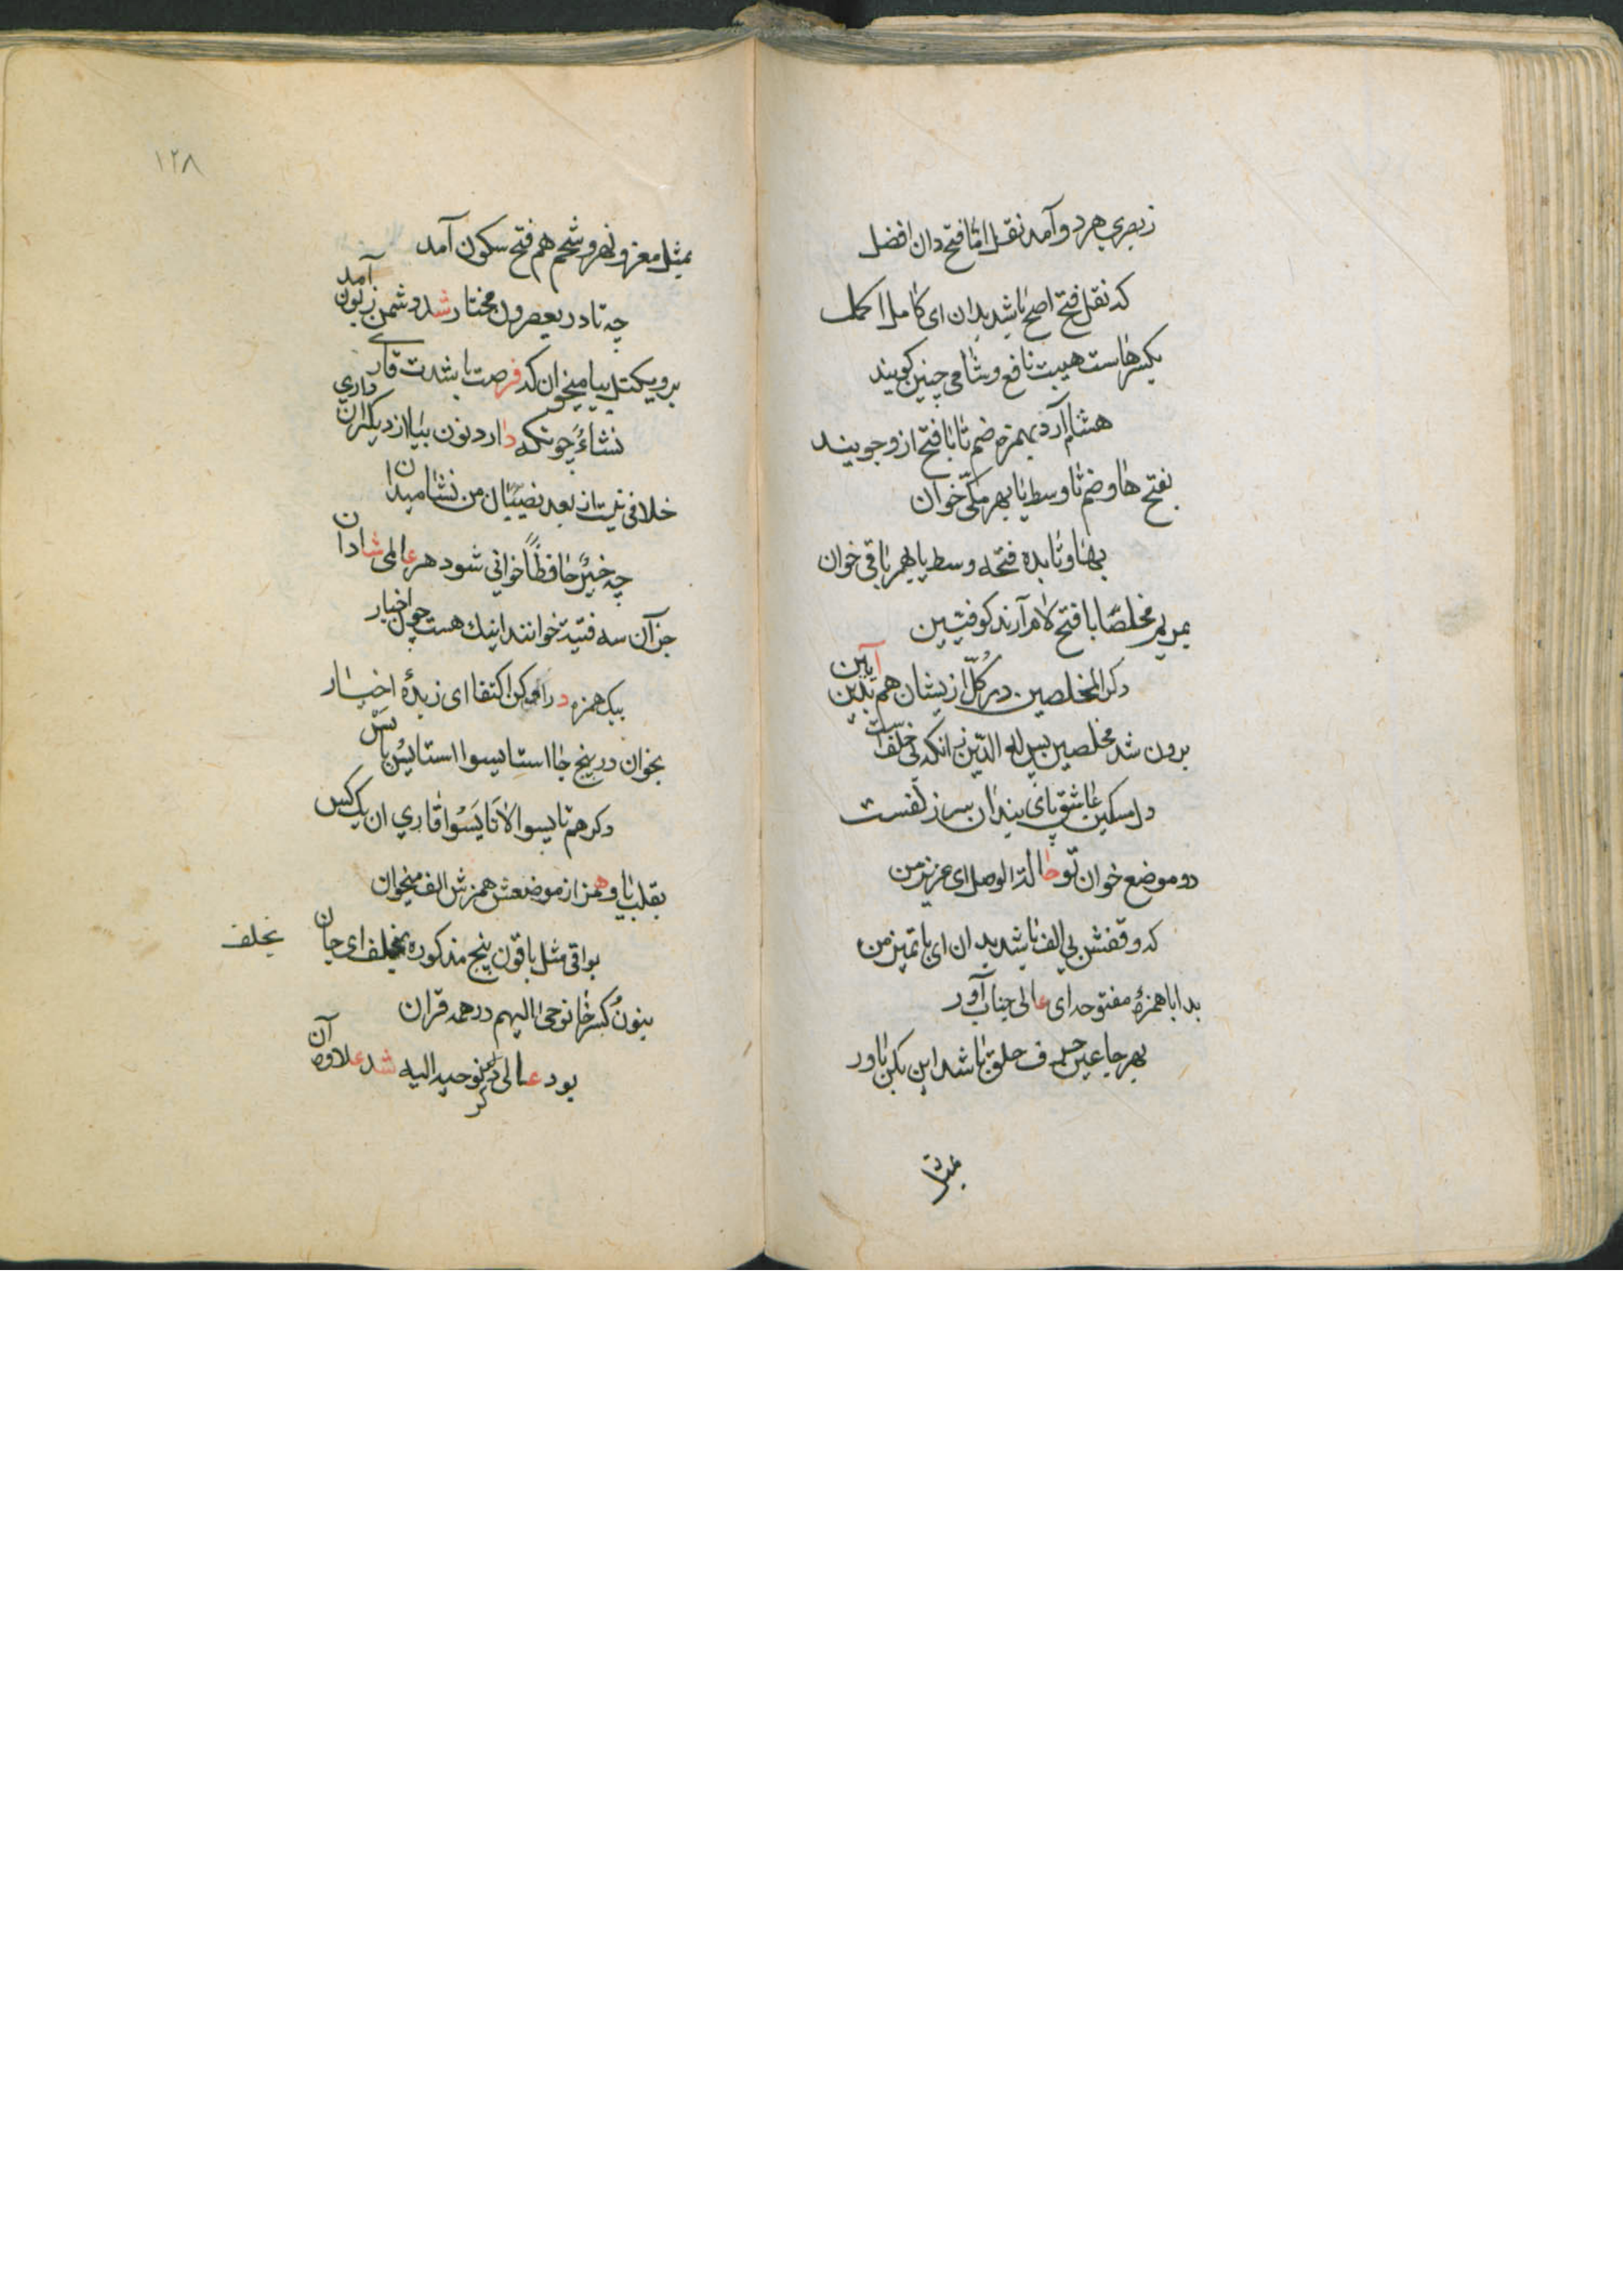 زبصری هردو آمد نقل اما فتح دان افضل
که نقل فتح اصح باشد بدان ای کامل اکمل
بکسرهاست هیت نافع و شامی چنین کویند
هشام آرد بهمزه ضم تا با فتح ازو جویند
بفتح ها و ضم تا وسط یا بهر مکی خوان
بها و تا بده فتحه وسط یا بهر باقی خوان
بمریم مخلصا با فتح لام آرند کوفیین
دکر المخلصین در کل ازیشان هم بدین آیین
برون شد مخلصین پس له الدین زانکه بی خلفست
دل مسکین عاشق پای بندان سر زلفست
دو موضع خوان تو حاشا لدا لوصل ای عزیز من
که وقفش بی الف باشد بدان ای با تمیز من
بدابا همزۀ مفتوحه ای عالی جناب آور
بهر جا عین حرف حلق باشد این بکن باور
بمثل
۱۲۸
بمثل معز و نهر و شحم هم فتح سکون آمد
چه تا در یعصرون مختار شد دشمن زبون آمد
برو یکتل بیا میخوان که فرصت باشدت قاری
نشاء چونکه دارد نون بیا از دیکران داری
خلافی نیست از بعد نصیب ان من نشا میدان
چه خیر حافظا خوانی شود هر عالمی شادان
جز آن سه فتیته خوانند اینک هست چون اخبار
بیک همزه درا می کن اکتفا ای زبدۀ اخیار
بخوان در پنج جا استایسوا استایس با پس
دکر هم تایسوا لا تایسوا قاری ان یک کس
بقلب یا و همز از موضعش همزش الف میخوان
بواقی مثل باقون پنج مذکوره بخلف ای جان
بخلف
بنون کسر خا نوحی الیهم در همه قران
بود عالی دکر نوحیه الیه شد علاوه آن